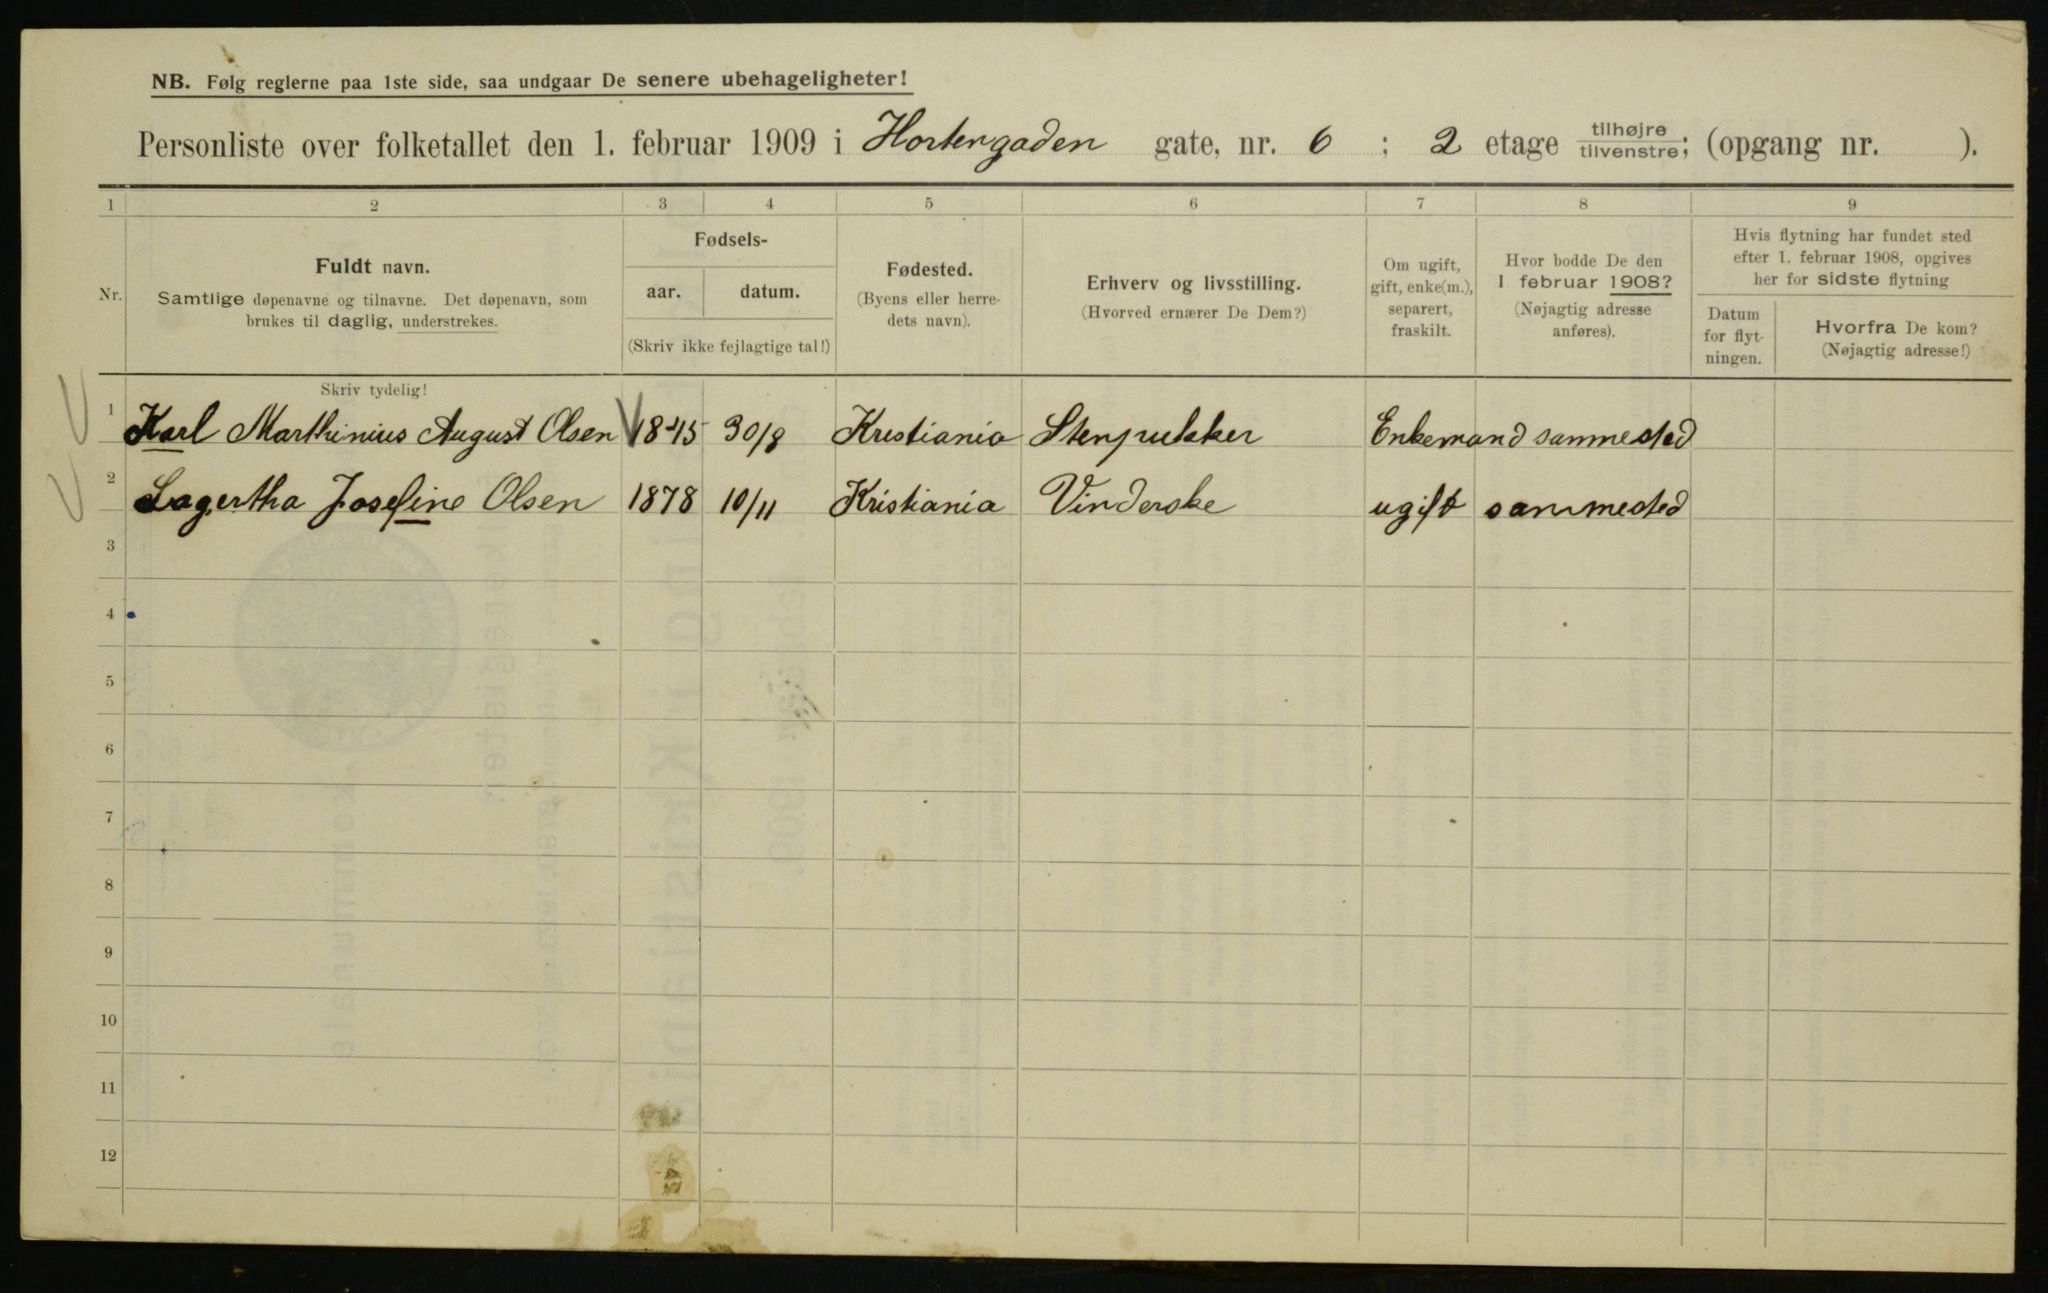 NB. Følg reglerne paa 1ste side, saa undgaar De senere ubehageligheter!
Personliste over folketallet den 1. februar 1909 i Hortengaden gate, nr. 6 ; 2 etage tilhøjre/tilvenstre; (opgang nr. ).
1 2 3 4 5 6 7 8 9
Nr.
Fuldt navn.
Samtlige døpenavne og tilnavne. Det døpenavn, som
brukes til daglig, understrekes.
Fødsels-
aar. datum.
(Skriv ikke fejlagtige tal!)
Fødested.
(Byens eller herre-
dets navn).
Erhverv og livsstilling.
(Hvorved ernærer De Dem?)
Om ugift,
gift, enke(m.),
separert,
fraskilt.
Hvor bodde De den
1 februar 1908?
(Nøjagtig adresse
anføres).
Hvis flytning har fundet sted
efter 1. februar 1908, opgives
her for sidste flytning
Datum
for flyt-
ningen.
Hvorfra De kom?
(Nøjagtig adresse!)
Skriv tydelig!
1 Karl Marthinius August Olsen 1845 30/8 Kristiania Stenpukker Enkemand sammested
2 Lagertha Josefine Olsen 1878 10/11 Kristiania Vinderske ugift sammested
3
4
5
6
7
8
9
10
11
12